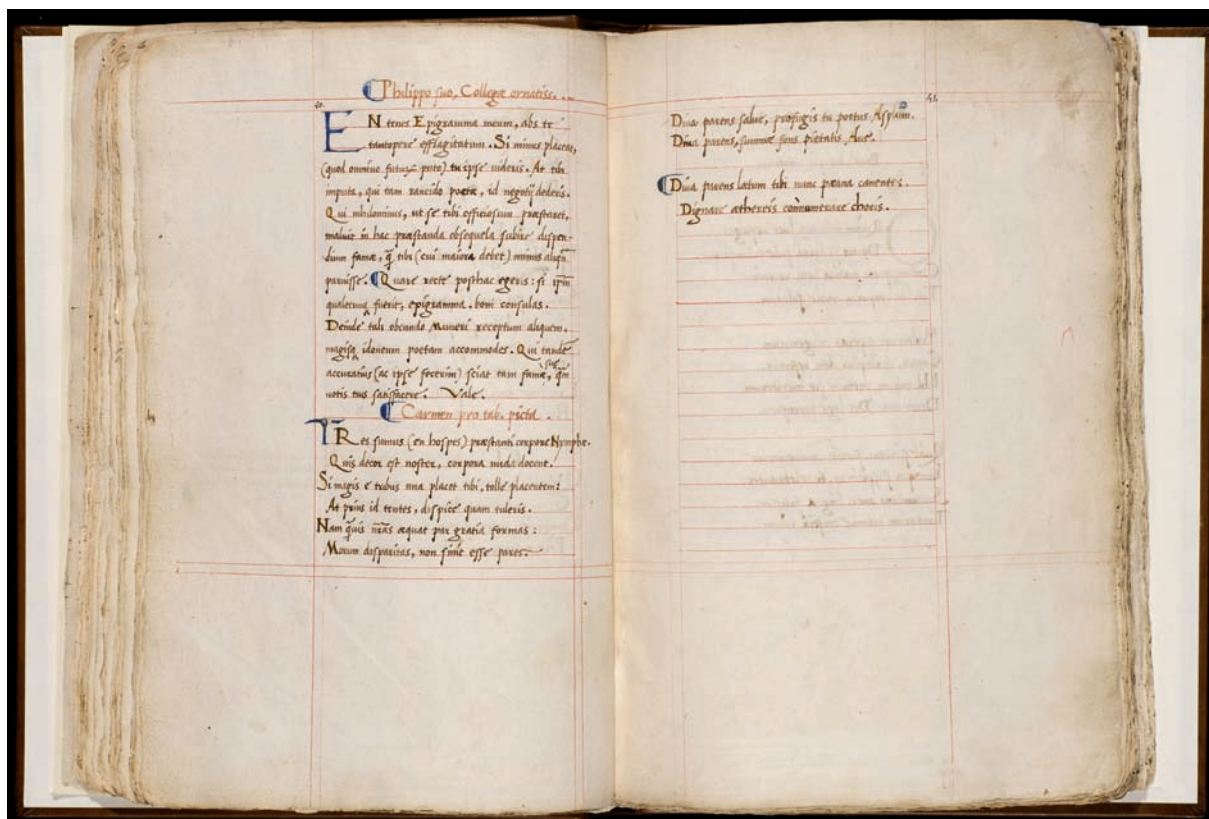 Philippo suo, Collegæ ornatiss.
40.
EN tenes Epigramma meum, abs te
tantopere efflagitatum. Si minus placeat,
(quod omnino futuꝝ puto) tu ipse videris. At tibi
imputa, qui tam rancido poetæ, id negotij dederis.
Qui nihilominus, ut se tibi officiosum præstaret,
maluit in hac præstanda obsequela subire dispen-
dium famæ, q̃ tibi (cui maiora debet) minus
paruisse. Quare recte posthac egeris: si ip̄m
fuerit, epigramma. boni consulas.
Deinde tali obeundo muneri receptum aliquem.
magisq idoneum poetam accommodes. Qui tandẽ
accuratius (ac ipse fecerim) sciat tam famæ,
votis tuis satisfacere. Vale.
Carmen pro tab. picta.
TRes sumus (en hospes) præstanti corpore Nymphe.
Quis decor est noster, corpora nuda docent.
Si magis e tribus una placet tibi, tolle placentem:
At prius id tentes, dispice quam tuleris.
Nam q̃uis nr̃as æquat par gratia formas:
Morum disparitas, non sinit esse pares.
41.
Diua parens salue, profugis tu portus Asylum.
Diua parens, summæ fons pietatis Aue.
Diua parens lætum tibi nunc pæana canentes.
Dignare æthereis connumerare choris.